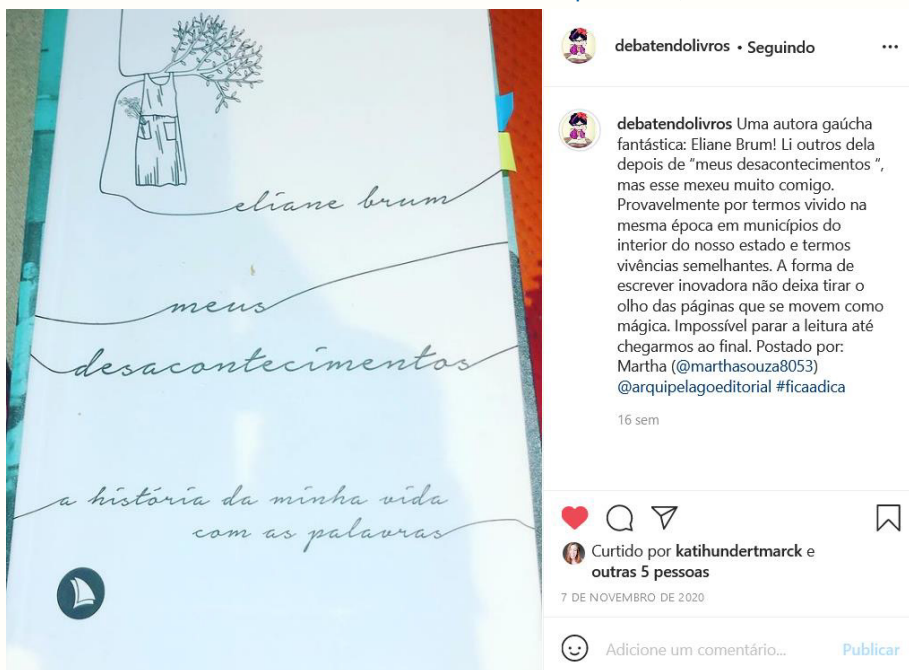 eliane brum
meus
desacontecimentos
a história da minha vida
com as palavras
debatendolivros • Seguindo
debatendolivros Uma autora gaúcha
fantástica: Eliane Brum! Li outros dela
depois de “meus desacontecimentos “,
mas esse mexeu muito comigo.
Provavelmente por termos vivido na
mesma época em municípios do
interior do nosso estado e termos
vivências semelhantes. A forma de
escrever inovadora não deixa tirar o
olho das páginas que se movem como
mágica. Impossível parar a leitura até
chegarmos ao final. Postado por:
Martha (@marthasouza8053)
@arquipelagoeditorial #ficaadica
16 sem
Curtido por katihundertmarck e
outras 5 pessoas
7 DE NOVEMBRO DE 2020
Adicione um comentário... Publicar